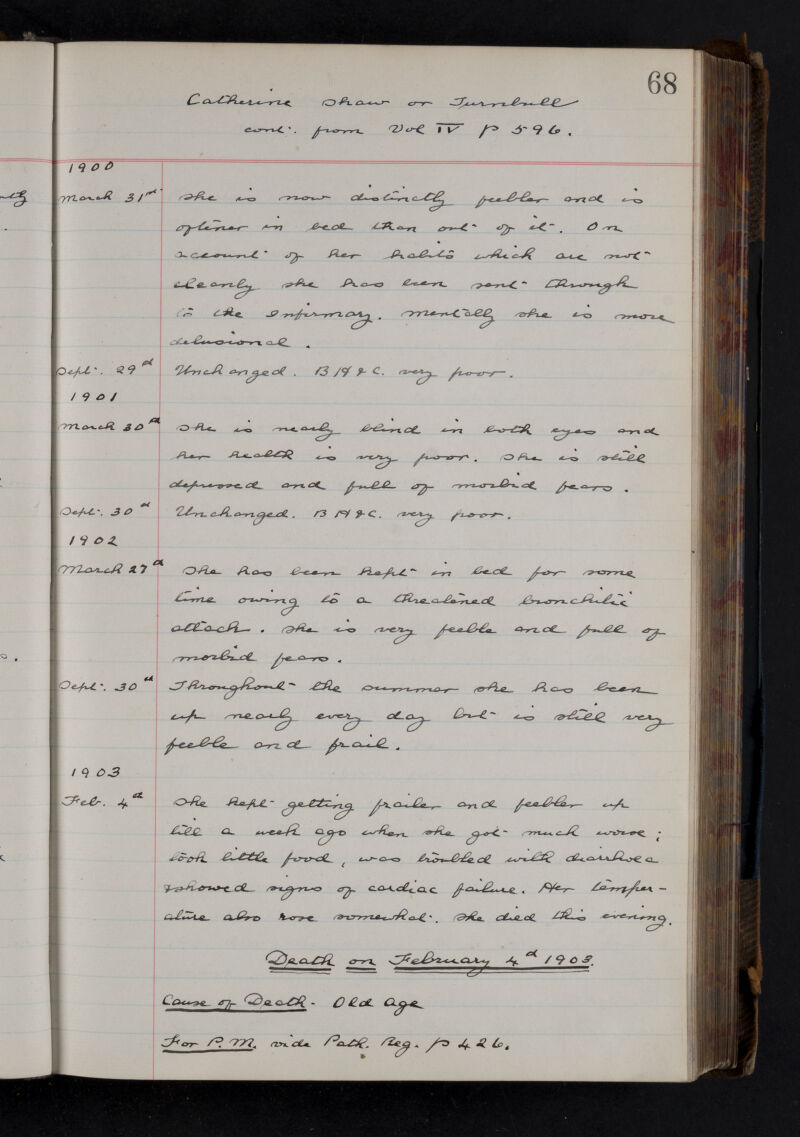 68
Catherine Shaw or Turnbull
cont. from Vol IV p 596.
1900
March 31st She is now distinctly feebler and is
oftener in bed than out of it. On
account of her habits which are not
cleanly she has been sent through
to the Infirmary. Mentally she is more
delusional.
Sept. 29th Unchanged. B H & C. very poor.
1901
March 30th She is nearly blind in both eyes and
her health is very poor. She is still
depressed and full of morbid fears.
Sept. 30th Unchanged. B H & C. very poor.
1902
March 27th She has been kept in bed for some
time owing to a threatened bronchitic
attack. She is very feeble and full of
morbid fears.
Sept. 30th Throughout the summer she has been
up nearly every day but is still very
feeble and frail.
1903
Feb. 4th She kept getting frailer and feebler up
till a week ago when she got much worse;
took little food, was troubled with diarrhoea
& showed signs of cardiac failure. Her temper-
ature also rose somewhat. She died this evening.
Death on February 4th 1903.
Cause of Death - Old Age
For P.M. vide Path. Reg. p 426.